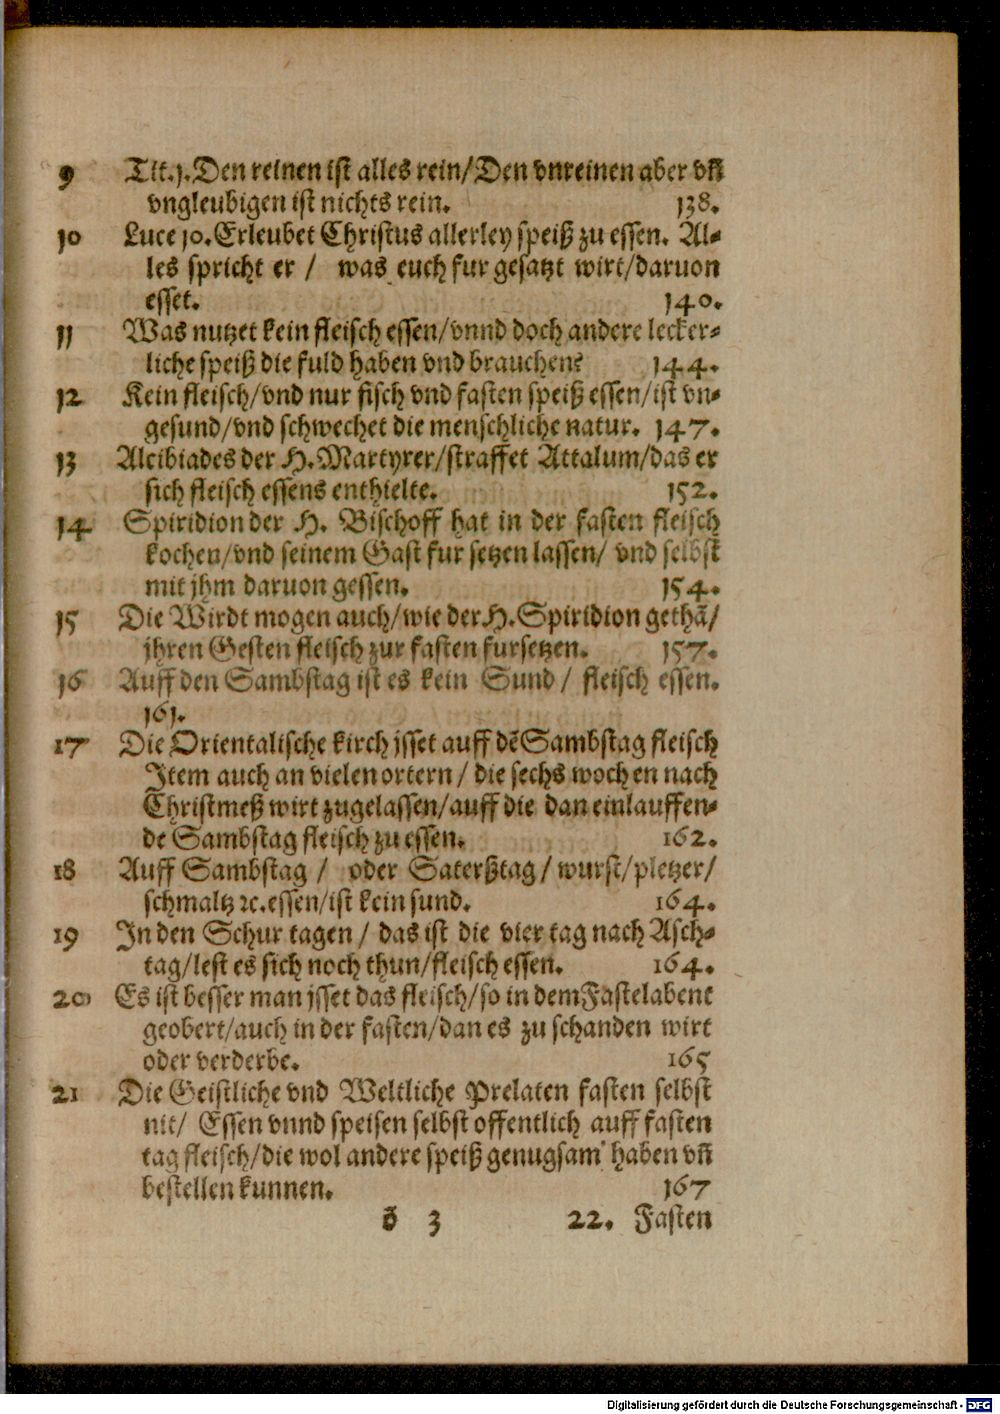 9 Tit.j. Den reinen ist alles rein/Den vnreinen aber vñ
vngleubigen ist nichts rein. 138.
10 Luce 10. Erleubet Christus allerley speiß zu essen. Al-
les spricht er / was euch fur gesatzt wirt/daruon
esset. 140.
11 Was nutzet kein fleisch essen/vnnd doch andere lecker-
liche speiß die fuld haben vnd brauchen? 144.
12 Kein fleisch/vnd nur fisch vnd fasten speiß essen/ist vn-
gesund/vnd schwechet die menschliche natur. 147.
13 Alcibiades der H. Martyrer/straffet Attalum/das er
sich fleisch essens enthielte. 152.
14 Spiridion der H. Bischoff hat in der fasten fleisch
kochen/vnd seinem Gast fur setzen lassen/ vnd selbst
mit jhm daruon gessen. 154.
15 Die Wirdt mogen auch/wie der H. Spiridion gethã/
jhren Gesten fleisch zur fasten fursetzen. 157.
16 Auff den Sambstag ist es kein Sund / fleisch essen.
161.
17 Die Orientalische kirch jsset auff dẽ Sambstag fleisch
Item auch an vielen ortern / die sechs wochen nach
Christmeß wirt zugelassen/auff die dan einlauffen-
de Sambstag fleisch zu essen. 162.
18 Auff Sambstag / oder Saterßtag / wurst/pletzer/
schmaltz ꝛc. essen/ist kein sund. 164.
19 In den Schur tagen / das ist die vier tag nach Asch-
tag/lest es sich noch thun/fleisch essen. 164.
20 Es ist besser man jsset das fleisch/so in dem Fastelabent
geobert/auch in der fasten/dan es zu schanden wirt
oder verderbe. 165
21 Die Geistliche vnd Weltliche Prelaten fasten selbst
nit/ Essen vnnd speisen selbst offentlich auff fasten
tag fleisch/die wol andere speiß genugsam haben vñ
bestellen kunnen. 167
õ 3 22. Fasten
Digitalisierung gefördert durch die Deutsche Forschungsgemeinschaft - DFG